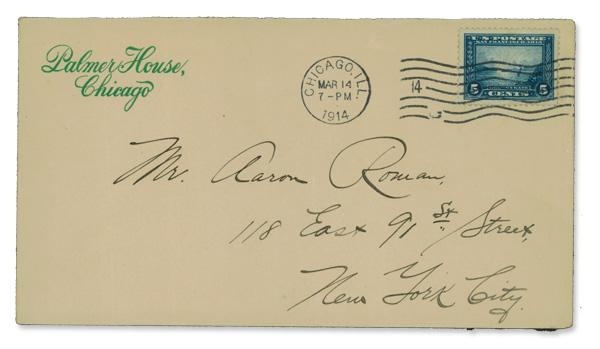 Palmer House,
Chicago
CHICAGO, ILL.
MAR 14
7-PM
1914
14
U.S. POSTAGE
SAN FRANCISCO, 1915
5 CENTS 5
Mr. Aaron Roman,
118 East 91st Street,
New York City.